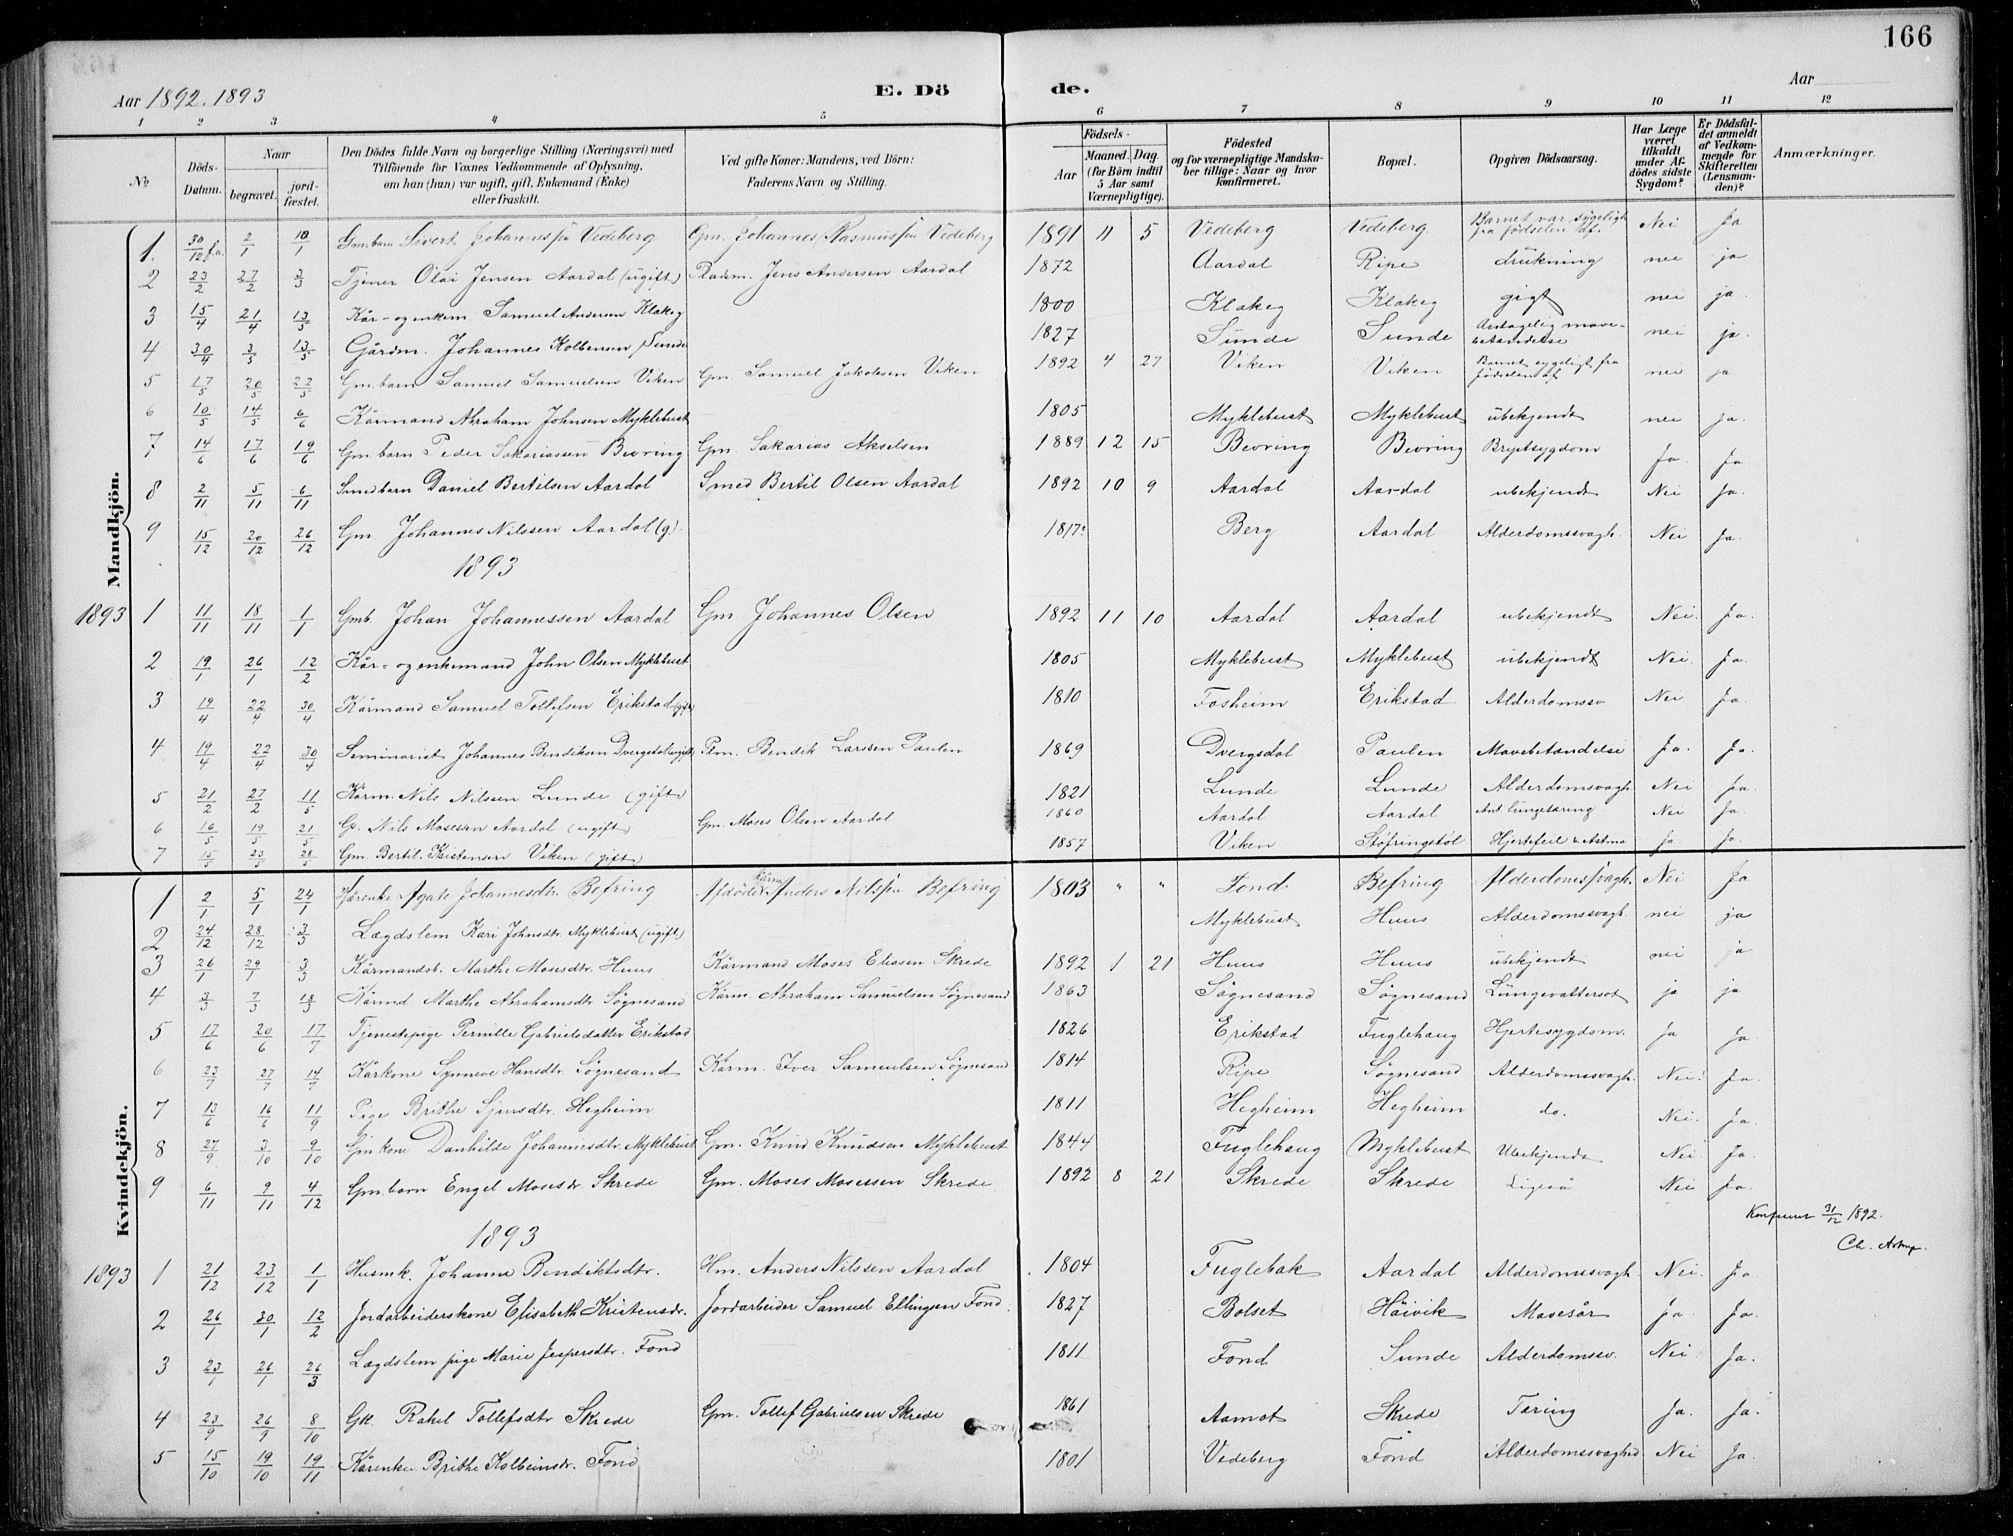 166
Aar 1892. 1893
E. Döde.
Aar
1 2 3 4 5 6 7 8 9 10 11 12
No.
Döds-Datum.
Naar
begravet.
jordfæstet.
Den Dödes fulde Navn og borgerlige Stilling (Næringsvei) med Tilföiende for Voxnes Vedkommende af Oplysning, om han (hun) var ugift, gift, Enkemand (Enke) eller fraskilt.
Ved gifte Koner: Mandens, ved Börn: Faderens Navn og Stilling.
Födsels-
Aar
Maaned. Dag.
(for Börn indtil 5 Aar samt Værnepligtige).
Födested og for værnepligtige Mandskaber tillige: Naar og hvor konfirmeret.
Bopæl.
Opgiven Dödsaarsag.
Har Læge været tilkaldt under Afdödes sidste Sygdom?
Er Dödsfaldet anmeldt af Vedkommende for Skifteretten (Lensmanden)?
Anmærkninger.
Mandkjön.
1. 30/12 f.a. 2/1 10/1 Gm.barn Sivert Johannesssön Vedeberg Gm. Johannes Rasmusssön Vedeberg 1891 11 5 Vedeberg Vedeberg Barnet var sygeligt fra födselen af. Nei Ja
2 23/2 27/2 3/3 Tjener Olai Jensen Aardal (ugift) Pladsm. Jens Andersen Aardal 1872 Aardal Ripe drukning nei ja
3 15/4 21/4 13/5 Kår- og enkem. Samuel Andersen Klakeg 1800 Klakeg Klakeg gigt nei ja
4 30/4 3/5 13/5 Gårdm. Johannes Kolbensen Sunde 1827 Sunde Sunde mavebetændelse nei ja.
5 17/5 20/5 22/5 Gm.barn Samuel Samuelsen Viken Gm. Samuel Jakobsen Viken 1892 4 27 Viken Viken Barnet sygeligt fra födselen af nei ja
6 10/5 14/5 6/6 Kårmand Abraham Johnsen Myklebust 1805 Myklebust Myklebust übekjendt nei ja.
7 14/6 17/6 19/6 Gm.barn Peder Sakariassen Bevring Gm. Sakarias Akselsen 1889 12 15 Bevring Bevring Brystsygdom Ja. Ja.
8 2/11 5/11 6/11 Smedbarn Daniel Bertilsen Aardal Smed Bertil Olsen Aardal 1892 10 9 Aardal Aardal ubekjendt Nei Ja.
9 15/12 20/12 26/12 Gm Johannes Nilssen Aardal (g). 1817 Berg Aardal Alderdomssvagh. Nei Ja.
1893
1893 1 11/11 18/11 1/1 Gmb. Johan Johannessen Aardal Gm Johannes Olsen 1892 11 10 Aardal Aardal ubekjendt Nei. Ja.
2 19/1 26/1 12/2 Kår- og enkemand John Olsen Myklebust 1805 Myklebust Myklebust übekjendt Nei. Ja.
3 19/4 22/4 30/4 Kårmand Samuel Tollefsen Erikstad (gift) 1810 Fosheim Erikstad Alderdomssv Nei Ja.
4 19/4 22/4 30/4 Seminarist Johannes Bendiksen Dvergsdal ugift Plm. Bendik Larssen Paulen 1869 Dvergsdal Paulen Mavebetændelse Ja. Ja.
5 21/2 27/2 11/5 Kårm. Nils Nilssen Lunde (gift) 1821 Lunde Lunde Alderdomsvagh Nei Ja.
6 16/5 19/5 21/5 G. Nils Mosessen Aardal (ugift) Gm. Moses Olsen Aardal 1860 Aardal Aardal Ant lüngetæring Nei Ja.
7 15/5 23/5 28/5 Gm. Bertil Kristensen Viken (gift) 1857 Viken Stöfringstöl Hjertefeil & Astma Ja Ja.
Kvindekjön.
1 2/1 5/1 24/1 Kårenke Agate Johannesdtr. Befring Afdöde Kårm. Anders Nilssön Befring 1803 " " Fond. Befring Alderdomssvagh. Nei Ja
2 24/12 28/12 3/3 Lægdslem Kari Johnsdtr. Myklebust (ugift) Myklebust Huus Alderdomssvagh nei ja
3 26/1 29/1 3/3 Kårmandsb. Marthe Mosesdtr. Huus Kårmand Moses Eliesen Skrede 1892 1 21 Huus Huus übekjendt nei ja
4 3/3 7/3 18/3 Kårmd Marthe Abrahamsdtr Sögnesand Kårm. Abraham Samuelsen Sögnesand 1863 Sögnesand Sögnesand Lüngevattersot ja ja
5 17/6 20/6 17/7 Tjenestepige Pernille Gabrielsdatter Erikstad 1826 Erikstad Fuglehaug Hjertesygdom. Ja Ja.
6 23/7 27/7 14/7 Kårkone Synneve Hansdtr. Sögnesand Kårm. Iver Samuelsen Sögnesand 1814 Ripe Sögnesand Alderdomssvagh. Nei. Ja.
7 13/6 16/6 11/9 Pige Brithe Sjursdtr. Hegheim 1811 Hegheim Hegheim do. Nei. Ja.
8 27/9 3/10 9/10 Gmkone Danhilde Johannesdtr. Myklebust Gm. Knud Knudsen Myklebust 1844 Fuglehaug Myklebust Ubekjendt Nei Ja.
9 6/11 9/11 4/12 Gm.barn Engel Mosesdr. Skrede Gm. Moses Mosessen Skrede 1892 8 21 Skrede Skrede Ligeså Nei Ja.
Konfereret 31/12 1892.
Ch. Astrup.
1893
1893 1 21/12 23/12 1/1 Husmk. Johanne Bendiktsdtr. Hm. Anders Nilssen Aardal 1804 Fuglebak Aardal Alderdomssvagh Nei. Ja
2 26/1 30/1 12/2 Jordarbeiderskone Elisabeth Kristensdr. Jordarbeider Samuel Ellingsen Fond. 1827 Bolset Håivik Mavesår Ja. Ja.
3 23/1 26/1 26/3 Lægdslem pige Marie Jespersdtr. Fond 1811 Fond Sunde Alderdomssv. Nei Ja.
4 23/9 26/9 8/10 Gk. Rahel Tollefsdtr Skrede Gm. Tollef Gabrielsen Skrede 1861 Aamot Skrede Tæring Ja. Ja.
5 15/10 19/10 19/11 Kårenke Brithe Kolbeinsdr. Fond 1801 Vedeberg Fond Alderdomssvaghed Nei Ja.